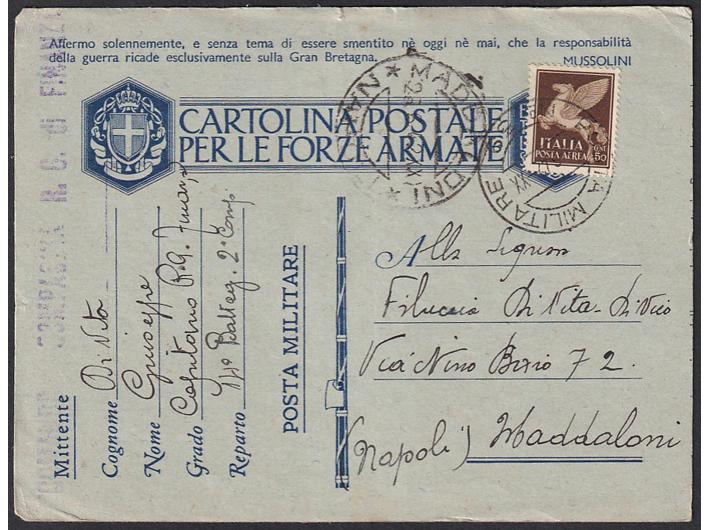 Affermo solennemente, e senza tema di essere smentito nè oggi nè mai, che la responsabilità
della guerra ricade esclusivamente sulla Gran Bretagna. MUSSOLINI
CARTOLINA POSTALE
PER LE FORZE ARMATE
MADDALONI
ITALIA
POSTA AEREA
CENT 50
POSTA MILITARE
Alla Signora
Filuccia Di Vita - Di Vico
Via Nino Bixio 72.
(Napoli) Maddaloni
POSTA MILITARE
Mittente
Cognome Di Vita
Nome Giuseppe
Grado Capitano R.G. Finanza
Reparto 11º Batteg. 2ª Comp
COMANDO COMPAGNIA R. G. di FINANZA